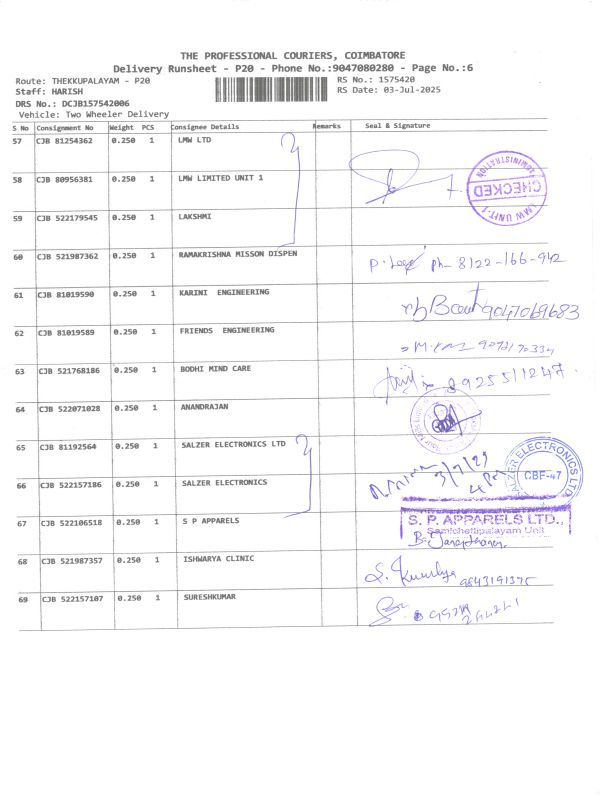 THE PROFESSIONAL COURIERS, COIMBATORE
Delivery Runsheet - P20 - Phone No.:9047080280 - Page No.:6
Route: THEKKUPALAYAM - P20
Staff: HARISH
DRS No.: DCJB157542006
Vehicle: Two Wheeler Delivery
RS No.: 1575420
RS Date: 03-Jul-2025
S No Consignment No Weight PCS Consignee Details Remarks Seal & Signature
57 CJB 81254362 0.250 1 LMW LTD
58 CJB 80956381 0.250 1 LMW LIMITED UNIT 1
ADMINISTRATION
CHECKED
LMW UNIT-1
59 CJB 522179545 0.250 1 LAKSHMI
60 CJB 521987362 0.250 1 RAMAKRISHNA MISSON DISPEN ph- 8122-166-942
61 CJB 81019590 0.250 1 KARINI ENGINEERING
62 CJB 81019589 0.250 1 FRIENDS ENGINEERING
63 CJB 521768186 0.250 1 BODHI MIND CARE
64 CJB 522071028 0.250 1 ANANDRAJAN
65 CJB 81192564 0.250 1 SALZER ELECTRONICS LTD 3/7/25
SALZER ELECTRONICS LTD
CBF-47
66 CJB 522157186 0.250 1 SALZER ELECTRONICS
67 CJB 522106518 0.250 1 S P APPARELS S. P. APPARELS LTD.,
Samichettipalayam Unit
68 CJB 521987357 0.250 1 ISHWARYA CLINIC
69 CJB 522157107 0.250 1 SURESHKUMAR